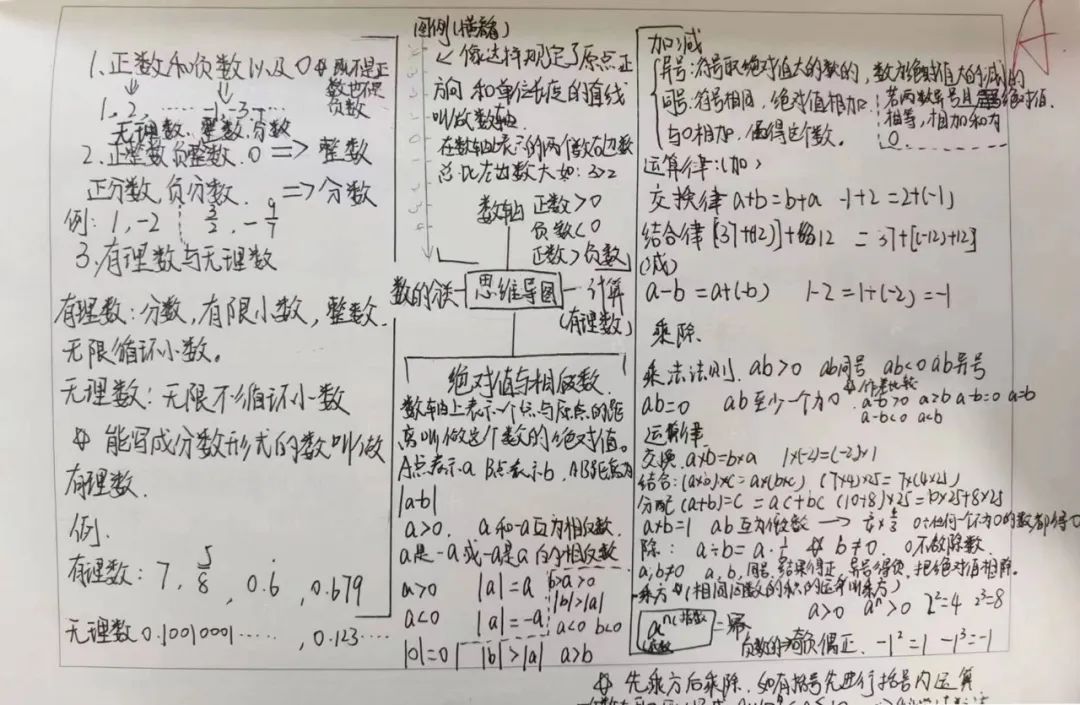 A
1.正数和负数以及0 既不是正
数也不是
负数
1, 2, …… -1, -3 ……
无理数. 整数. 分数
2.正整数负整数、0 => 整数
正分数,负分数. => 分数
例: 1, -2 3/2, -9/7
3.有理数与无理数
有理数:分数,有限小数,整数.
无限循环小数。
无理数:无限不循环小数
能写成分数形式的数叫做
有理数.
例.
有理数: 7, 5/8, 0.6, 0.679
无理数 0.10010001……, 0.123……
图例(横着看)
像这样规定了原点正
方向 和单位长度的直线
叫做数轴
在数轴上表示的两个数右边数
总比左边数大如: 3>2
数轴 正数>0
负数<0
正数>负数
思维导图
计算
(有理数)
绝对值与相反数.
数轴上表示一个点与原点的距
离叫做这个数的绝对值。
A点表示a B点表示b, AB距离为
|a-b|
a>0, a和-a互为相反数,
a是-a或-a是a的相反数
a>0 |a|=a
a<0 |a|=-a
|0|=0
b>a>0
|b|>|a|
a<0 b<0
|b|>|a| a>b
加减
异号:符号取绝对值大的数的,
同号:符号相同,绝对值相加.
若两数异号且绝对值
相等,相加和为
0.
与0相加,仍得这个数。
运算律:(加)
交换律 a+b=b+a -1+2=2+(-1)
结合律 [37+(-12)]+12 = 37+[(-12)+12]
(减)
a-b=a+(-b) 1-2=1+(-2)=-1
乘除.
乘法法则. ab>0 ab同号 ab<0 ab异号
ab=0 ab至少一个为0
作差比较
a-b>0 a>b a-b=0 a=b
a-b<0 a<b
运算律
交换. a×b=b×a 1×(-2)=(-2)×1
结合:(a×b)×c=a×(b×c) (7×4)×25=7×(4×25)
分配 (a+b)=c = ac+bc (10+8)×25=10×25+8×25
a×b=1 ab互为倒数 0÷任何一个不为0的数都得0
除: b≠0. 0不做除数.
a,b≠0 a,b,同号结果得正,异号得负,把绝对值相除.
乘方 (相同因数的积的运算叫乘方)
a^n 指数 =幂
底数
a>0 a^n>0 2^2=4 2^3=8
负数的奇负偶正. -1^2=1 -1^3=-1
先乘方后乘除.如有括号先进行括号内运算